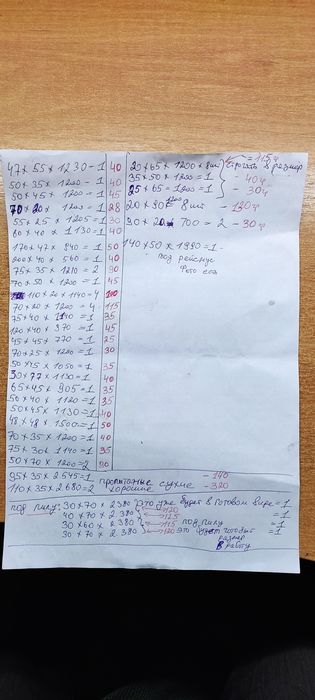 47 x 55 x 1230 - 1 40
50 x 35 x 1200 - 1 40
50 x 45 x 1200 = 1 45
70 x 20 x 1200 = 1 28
55 x 25 x 1205 = 1 30
60 x 40 x 1130 = 1 40
170 x 47 x 840 = 1 50
200 x 40 x 560 = 1 40
75 x 35 x 1210 = 2 90
70 x 50 x 1200 = 1 45
110 x 20 x 1140 = 4 100
70 x 20 x 1200 = 4 115
75 x 40 x 1140 = 1 35
120 x 40 x 370 = 1 45
45 x 45 x 770 = 1 25
70 x 25 x 1200 = 1 30
50 x 45 x 1050 = 1 35
30 x 77 x 1130 = 1 40
65 x 45 x 905 = 1 35
50 x 40 x 1120 = 1 35
50 x 45 x 1130 = 1 40
48 x 48 x 1500 = 1 50
70 x 35 x 1200 = 1 40
75 x 30 x 1140 = 1 35
50 x 70 x 1200 = 2 90
95 x 35 x 2.545 = 1 пропитаные сухие - 140
110 x 35 x 2.680 = 2 хорошие - 320
20 x 65 x 1200 x 8 шт строгать в размер = 115 ч
35 x 50 x 1200 = 1 - 40 ч
25 x 65 x 1200 = 1 - 30 ч
20 x 90 x 1200 = 8 шт - 120 ч
90 x 20 x 700 = 2 - 30 ч
140 x 50 x 1990 = 1
под рейсмус
фото есть
под пилу: 30 x 70 x 2.380 это уже будет в готовом виде = 1
40 x 70 x 2.380 120 = 1
30 x 60 x 2.380 115 под пилу = 1
30 x 70 x 2.380 120 это будет готовый = 1
размер
в работу